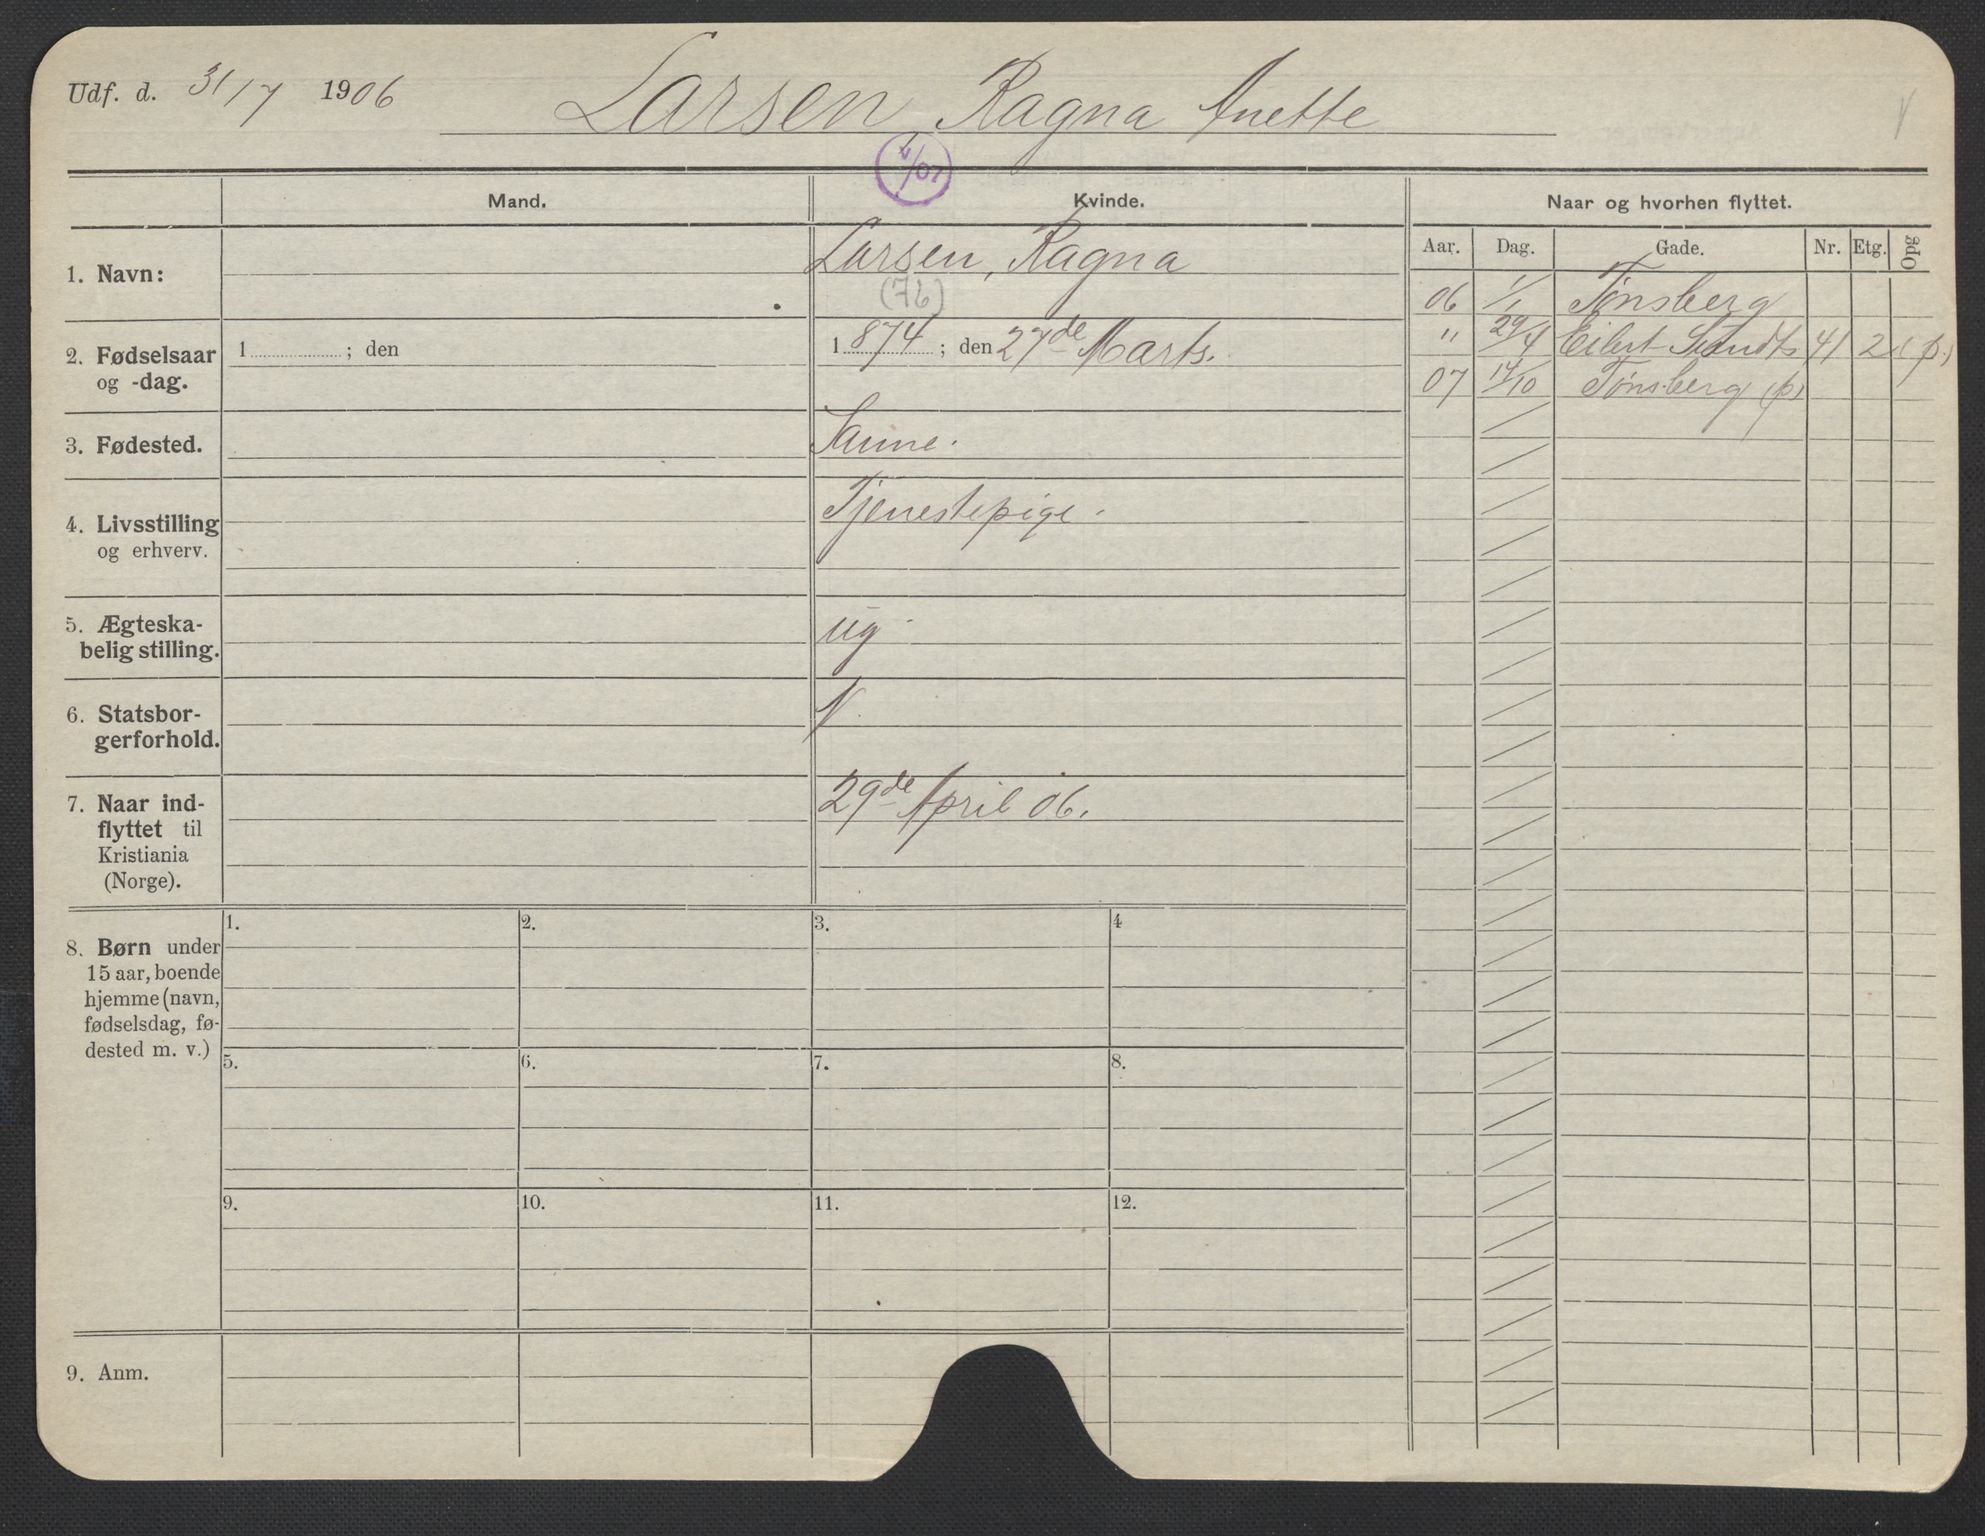 Udf. d. 31/7 1906 Larsen Ragna Anette
4/07
Mand. Kvinde. Naar og hvorhen flyttet.
Aar. Dag. Gade. Nr. Etg. Opg
1. Navn: Larsen, Ragna
(76)
06 1/1 Tønsberg
" 29/4 Eilert Sundts 41 2 (p.)
07 14/10 Tønsberg (p)
2. Fødselsaar og -dag.
1 ; den
1874 ; den 27de Marts.
3. Fødested. Saune.
4. Livsstilling og erhverv. Tjenestepige.
5. Ægteska-
belig stilling. ug
6. Statsbor-
gerforhold. N.
7. Naar ind-
flyttet til
Kristiania
(Norge).
29de April 06.
8. Børn under
15 aar, boende
hjemme (navn,
fødselsdag, fø-
dested m. v.)
1. 2. 3. 4
5. 6. 7. 8.
9. 10. 11. 12.
9. Anm.